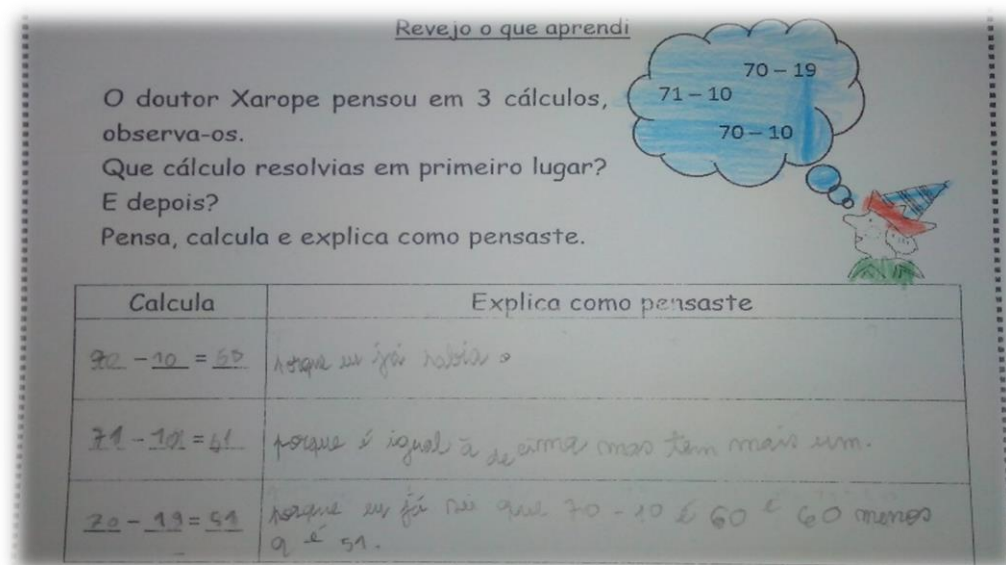 Revejo o que aprendi
70 – 19
71 – 10
70 – 10
O doutor Xarope pensou em 3 cálculos,
observa-os.
Que cálculo resolvias em primeiro lugar?
E depois?
Pensa, calcula e explica como pensaste.
Calcula Explica como pensaste
70 - 10 = porque eu já sabia.
71 - 10 = 61 porque é igual à de cima mas tem mais um.
70 - 19 = 51 porque eu já sei que 70 - 10 é 60 e 60 menos
9 é 51.